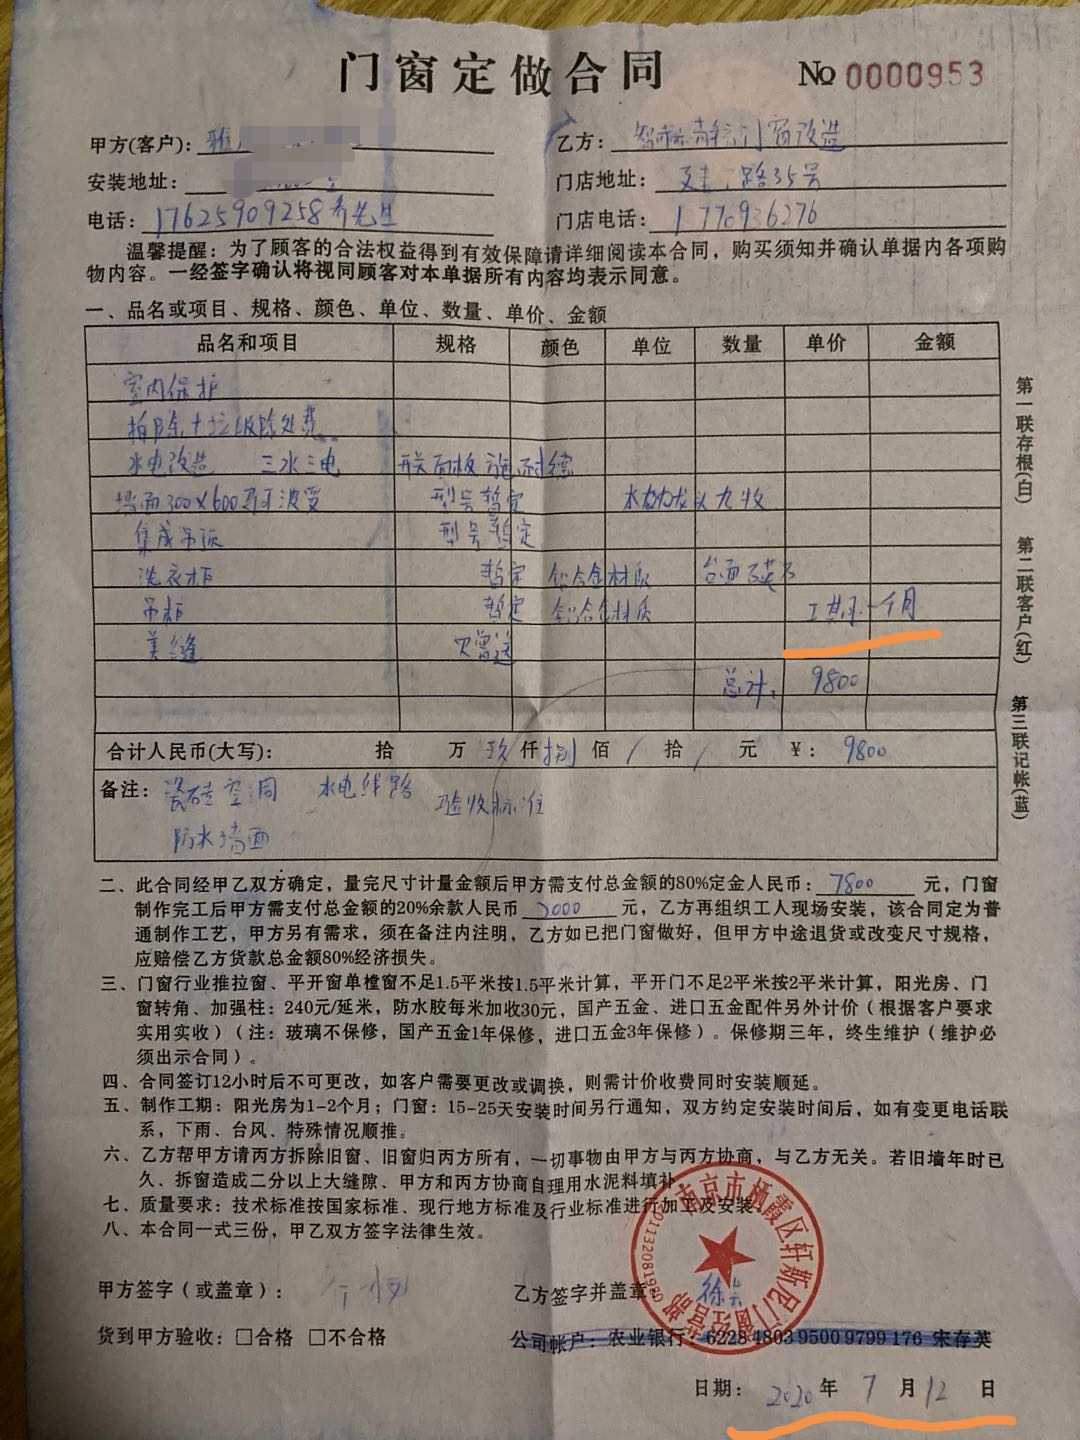 门窗定做合同 No 0000953
甲方(客户): 雅 乙方: 门窗改造
安装地址: 门店地址: 路35号
电话: 17625909258 乔先生 门店电话: 1770936276
温馨提醒：为了顾客的合法权益得到有效保障请详细阅读本合同，购买须知并确认单据内各项购
物内容。一经签字确认将视同顾客对本单据所有内容均表示同意。
一、品名或项目、规格、颜色、单位、数量、单价、金额
品名和项目 规格 颜色 单位 数量 单价 金额
室内保护
拍除+垃圾除处费
水电改造 三水三电 开关面板 施耐德
墙面300×600 型号暂定 水 龙头九牧
集成吊顶 型号暂定
洗衣柜 暂定 铝合金材质 台面石英石
吊柜 暂定 铝合金材质 工期一个月
美缝 赠送
总计: 9800
合计人民币(大写): 拾 万 玖 仟 捌 佰 / 拾 / 元 ¥: 9800
备注: 瓷砖空周 水电线路 验收标准
防水墙面
二、此合同经甲乙双方确定，量完尺寸计量金额后甲方需支付总金额的80%定金人民币: 7800 元，门窗
制作完工后甲方需支付总金额的20%余款人民币 2000 元，乙方再组织工人现场安装，该合同定为普
通制作工艺，甲方另有需求，须在备注内注明，乙方如已把门窗做好，但甲方中途退货或改变尺寸规格，
应赔偿乙方货款总金额80%经济损失。
三、门窗行业推拉窗、平开窗单樘窗不足1.5平米按1.5平米计算，平开门不足2平米按2平米计算，阳光房、门
窗转角、加强柱：240元/延米，防水胶每米加收30元，国产五金、进口五金配件另外计价（根据客户要求
实用实收）（注：玻璃不保修，国产五金1年保修，进口五金3年保修）。保修期三年，终生维护（维护必
须出示合同）。
四、合同签订12小时后不可更改，如客户需要更改或调换，则需计价收费同时安装顺延。
五、制作工期：阳光房为1-2个月；门窗：15-25天安装时间另行通知，双方约定安装时间后，如有变更电话联
系，下雨、台风、特殊情况顺推。
六、乙方帮甲方请丙方拆除旧窗、旧窗归丙方所有，一切事物由甲方与丙方协商，与乙方无关。若旧墙年时已
久、拆窗造成二分以上大缝隙、甲方和丙方协商自理用水泥料填补。
七、质量要求：技术标准按国家标准、现行地方标准及行业标准进行加工及安装。
八、本合同一式三份，甲乙双方签字法律生效。
甲方签字（或盖章）： 乙方签字并盖章: 徐
南京市栖霞区轩斯尼门窗经营部
货到甲方验收: □合格 □不合格 公司帐户: 农业银行: 6228 4803 9500 9799 176 宋存英
日期: 2020年 7 月 12 日
第一联存根(白)
第二联客户(红)
第三联记帐(蓝)